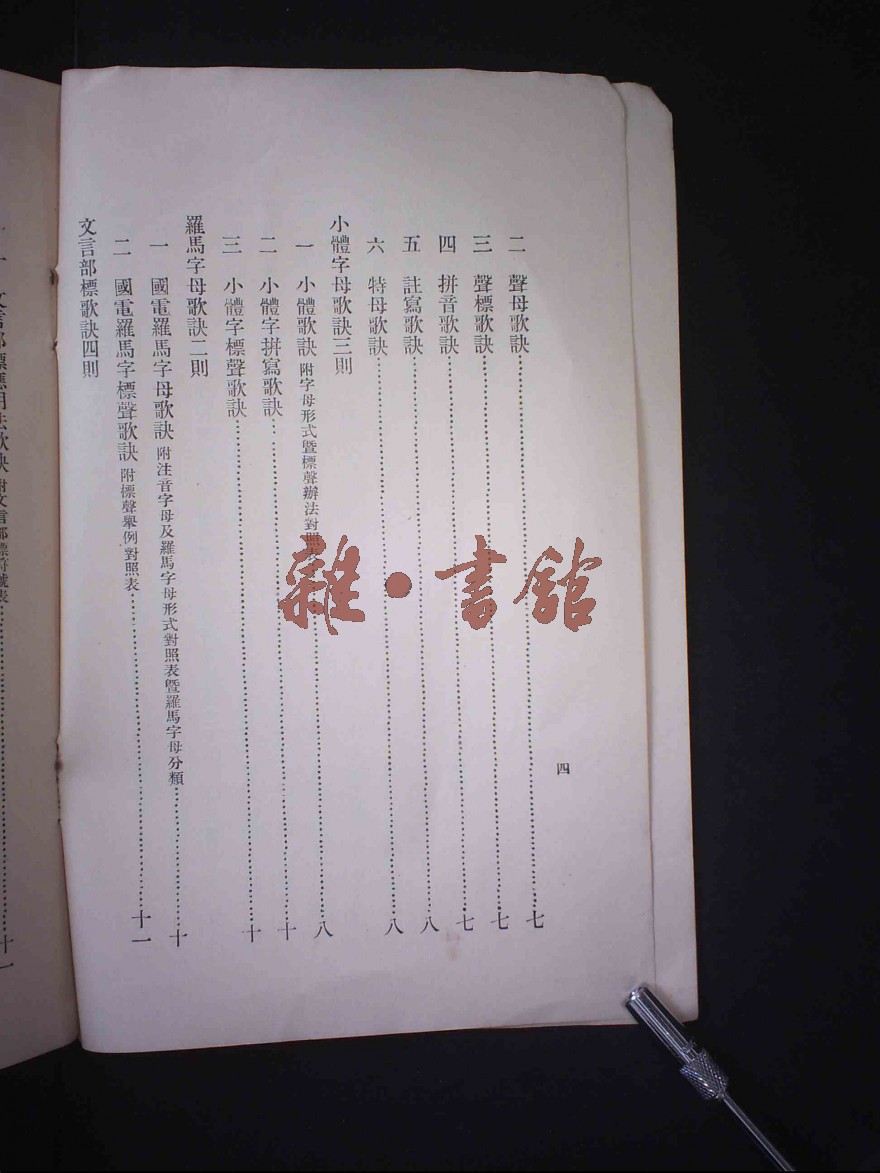 四
二　聲母歌訣……七
三　聲標歌訣……七
四　拼音歌訣……七
五　註寫歌訣……八
六　特母歌訣……八
小體字母歌訣三則
一　小體歌訣 附字母形式暨標聲辦法對照表……八
二　小體字拼寫歌訣……十
三　小體字標聲歌訣……十
羅馬字母歌訣二則
一　國電羅馬字母歌訣 附注音字母及羅馬字母形式對照表暨羅馬字母分類……十
二　國電羅馬字標聲歌訣 附標聲舉例對照表……十一
文言部標歌訣四則
文言部標應用法歌訣 附文言部標符號表……十一
雜·書館